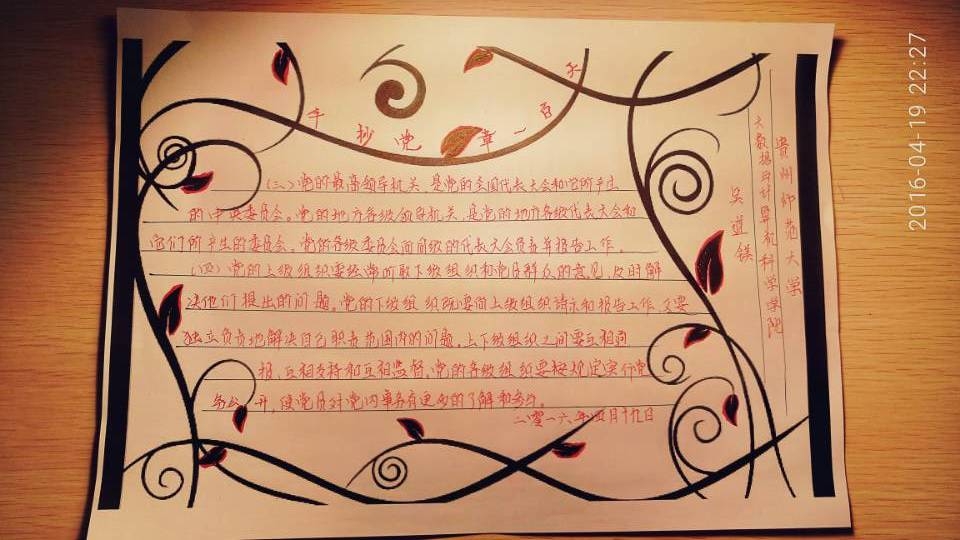 手抄党章一百天
(三)党的最高领导机关,是党的全国代表大会和它所产生
的中央委员会。党的地方各级领导机关,是党的地方各级代表大会和
它们所产生的委员会。党的各级委员会向同级的代表大会负责并报告工作。
(四)党的上级组织要经常听取下级组织和党员群众的意见,及时解
决他们提出的问题。党的下级组织既要向上级组织请示和报告工作,又要
独立负责地解决自己职责范围内的问题。上下级组织之间要互相通
报、互相支持和互相监督。党的各级组织要按规定实行党
务公开,使党员对党内事务有更多的了解和参与。
二零一六年四月十九日
贵州师范大学
大数据与计算机科学学院
吴道镁
2016-04-19 22:27